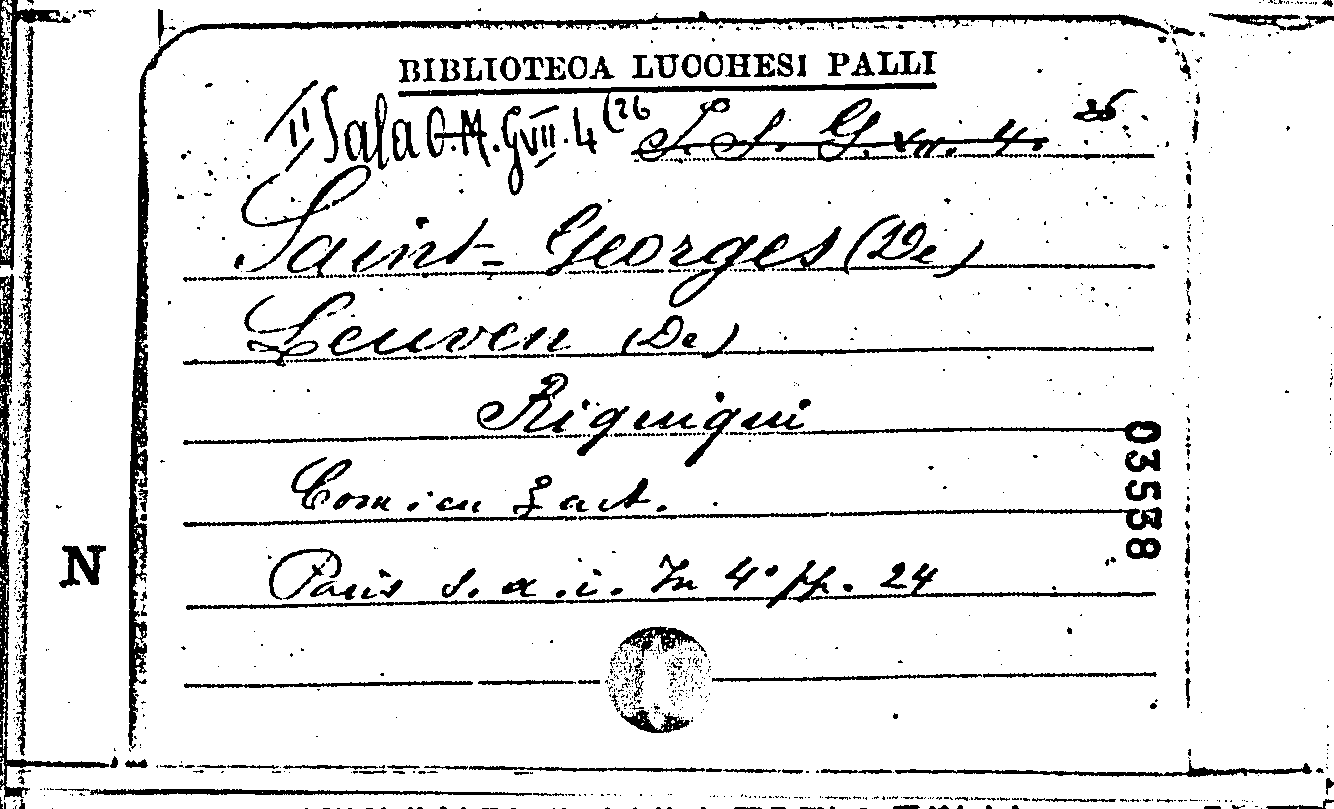 BIBLIOTECA LUCCHESI PALLI
II Sala C.M. G VII. 4 (26 S. S. G. XII. 4. 26
Saint-Georges (De)
Leuven (De)
Riquiqui
Com. in 3 act.
Paris s. a. i. In 4° pp. 24
03538
N